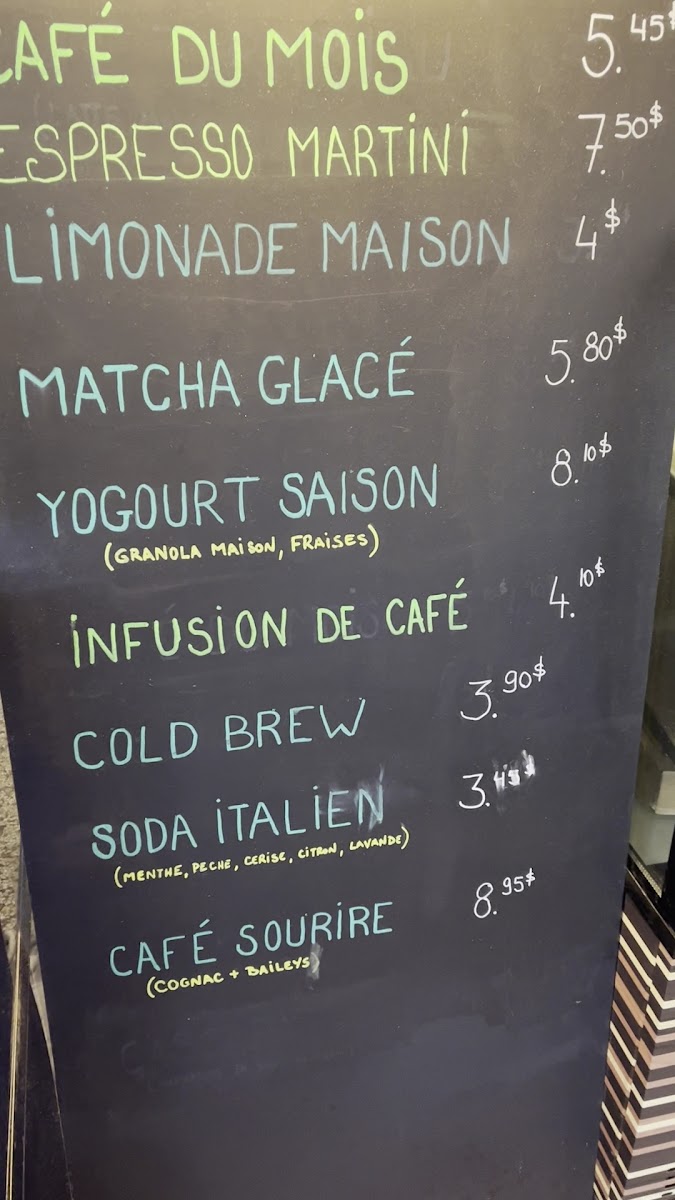 CAFÉ DU MOIS 5.45$
ESPRESSO MARTINI 7.50$
LIMONADE MAISON 4$
MATCHA GLACÉ 5.80$
YOGOURT SAISON 8.10$
(GRANOLA MAISON, FRAISES)
INFUSION DE CAFÉ 4.10$
COLD BREW 3.90$
SODA ITALIEN 3.45$
(MENTHE, PECHE, CERISE, CITRON, LAVANDE)
CAFÉ SOURIRE 8.95$
(COGNAC + BAILEYS)